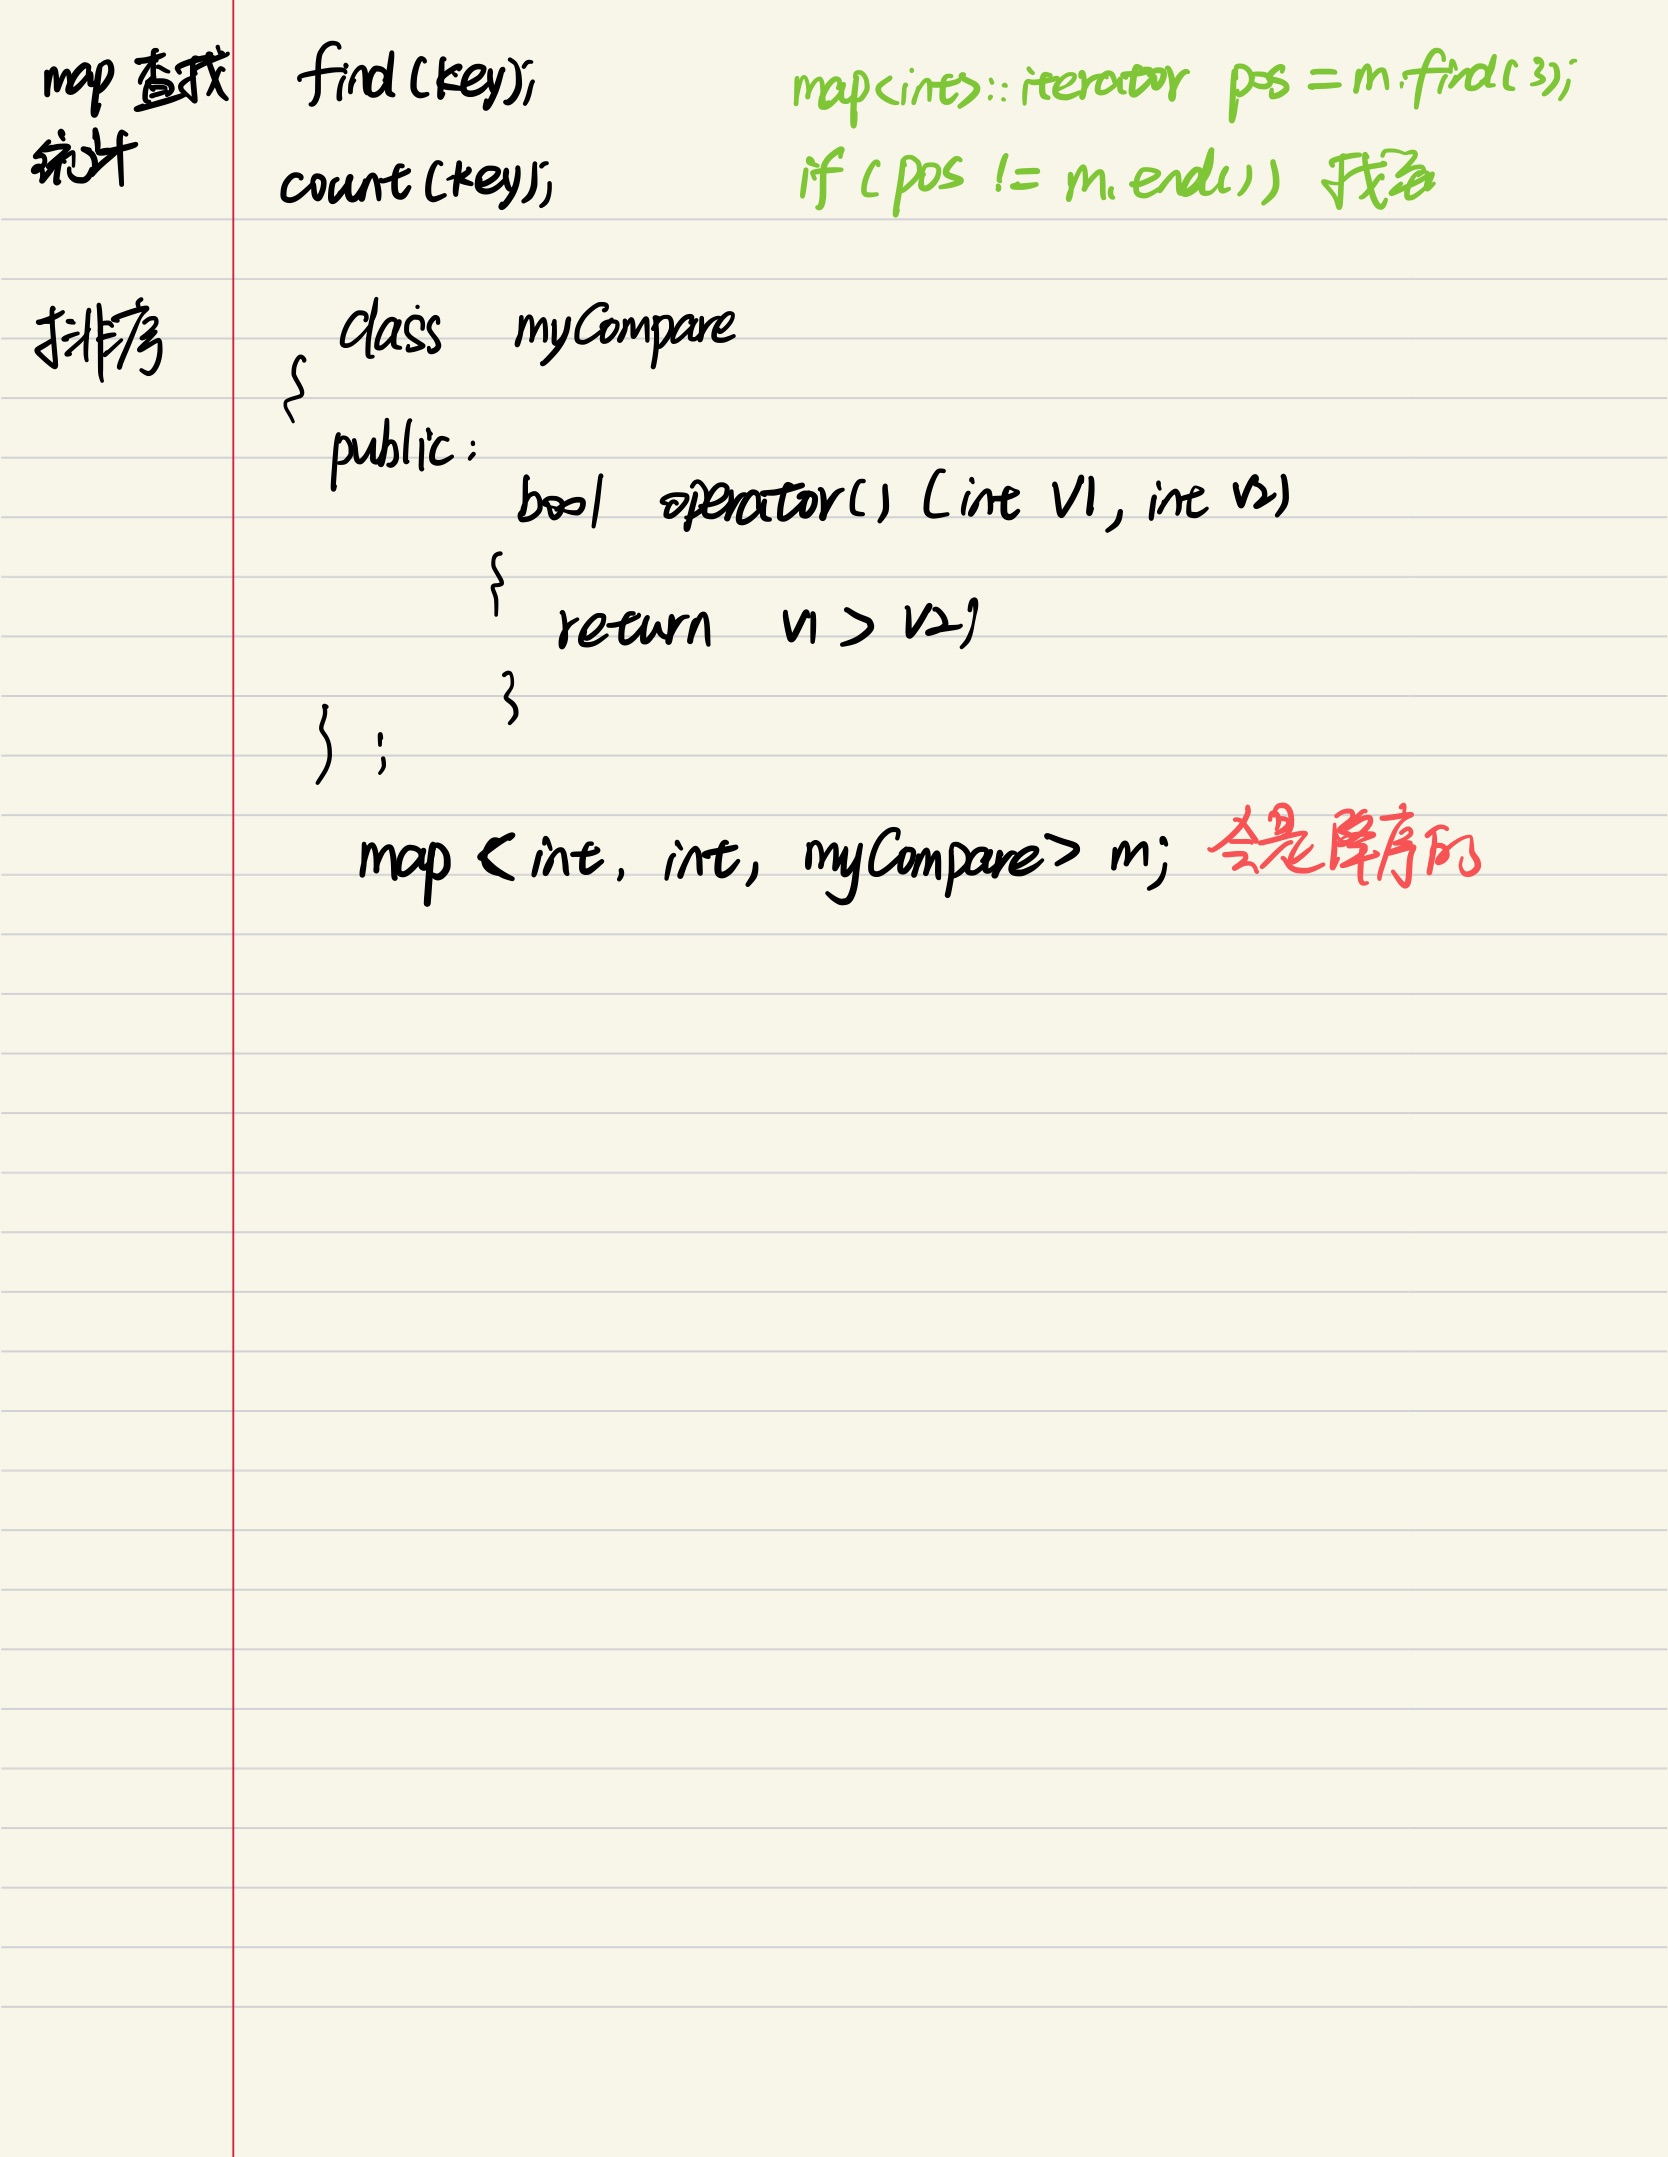 map 查找 find(key); map<int>::iterator pos = m.find(3);
统计 count(key); if (pos != m.end()) 找到
排序 class myCompare
{
public:
bool operator() (int v1, int v2)
{
return v1 > v2;
}
};
map <int, int, myCompare> m; 会是降序的